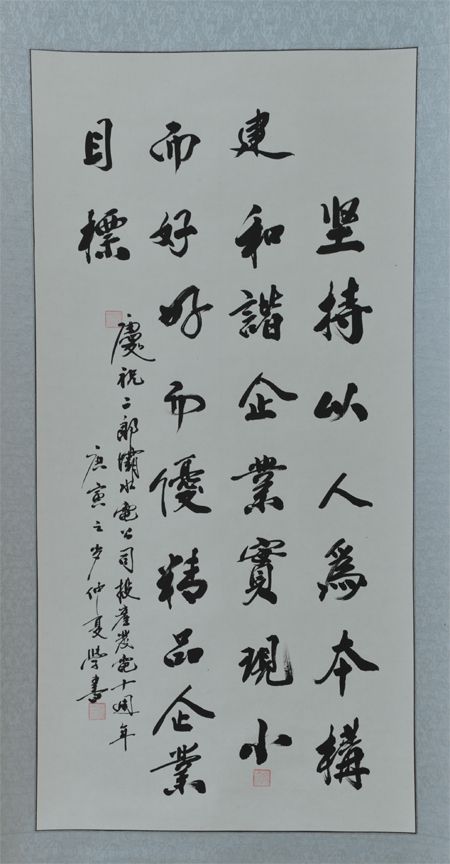 坚持以人為本構
建和諧企業實現小
而好好而優精品企業
目標
慶祝二郎壩水電公司投產發電十週年
庚寅之岁仲夏學書